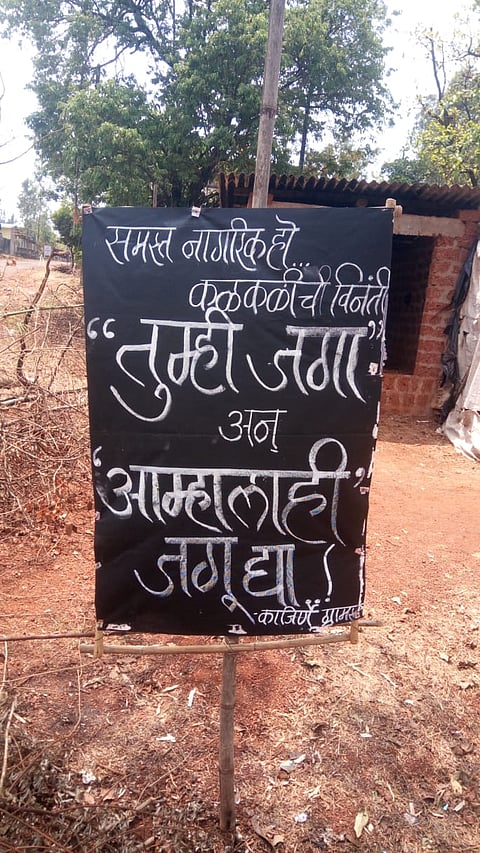 समस्त नागरिक हो...
कळकळीची विनंती
“तुम्ही जगा”
अन्
‘आम्हालाही’
जगू द्या !
- काजिर्णे ग्रामस्थ